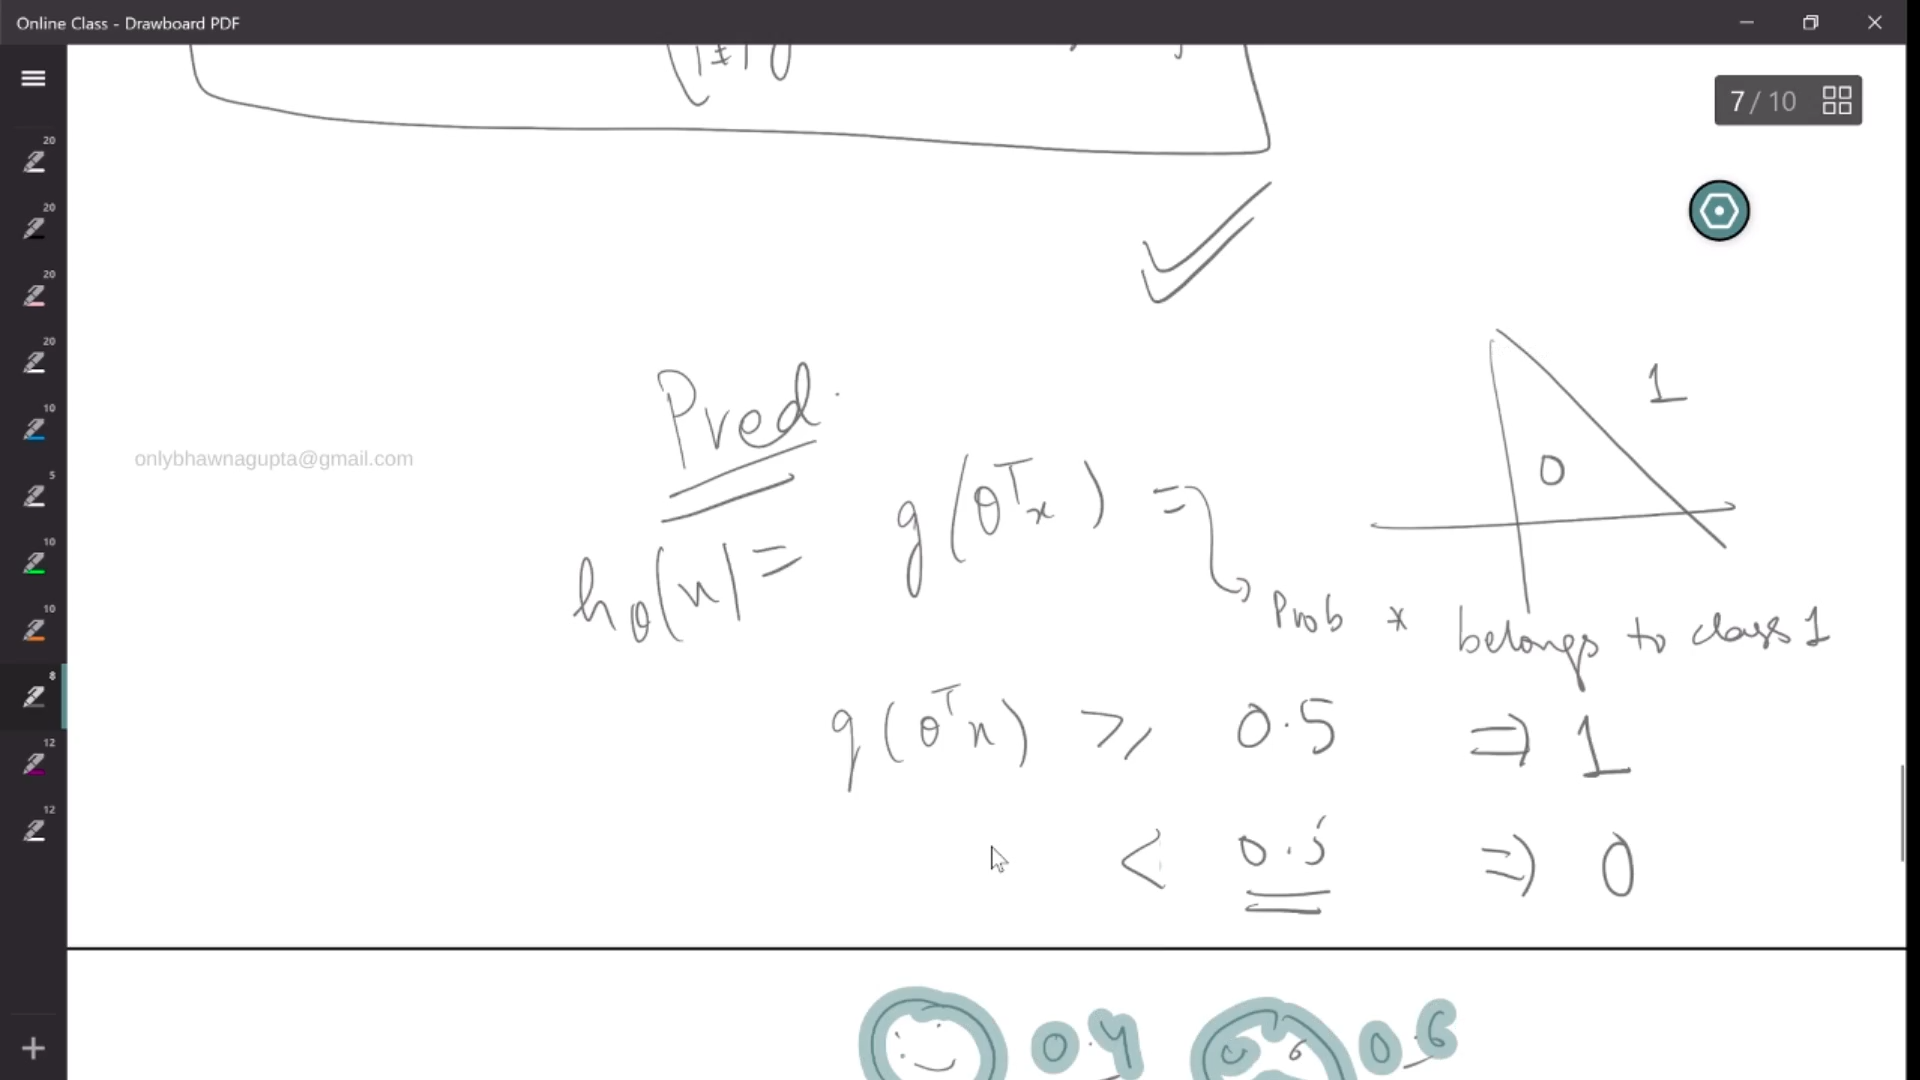 Online Class - Drawboard PDF
7 / 10
20
20
20
20
10
5
10
10
8
12
12
1
0
Pred.
onlybhawnagupta@gmail.com
hθ(x) = g(θᵀx) =
Prob x belongs to class 1
g(θᵀx) ≥ 0.5 ⇒ 1
< 0.5 ⇒ 0
0.4 0.6